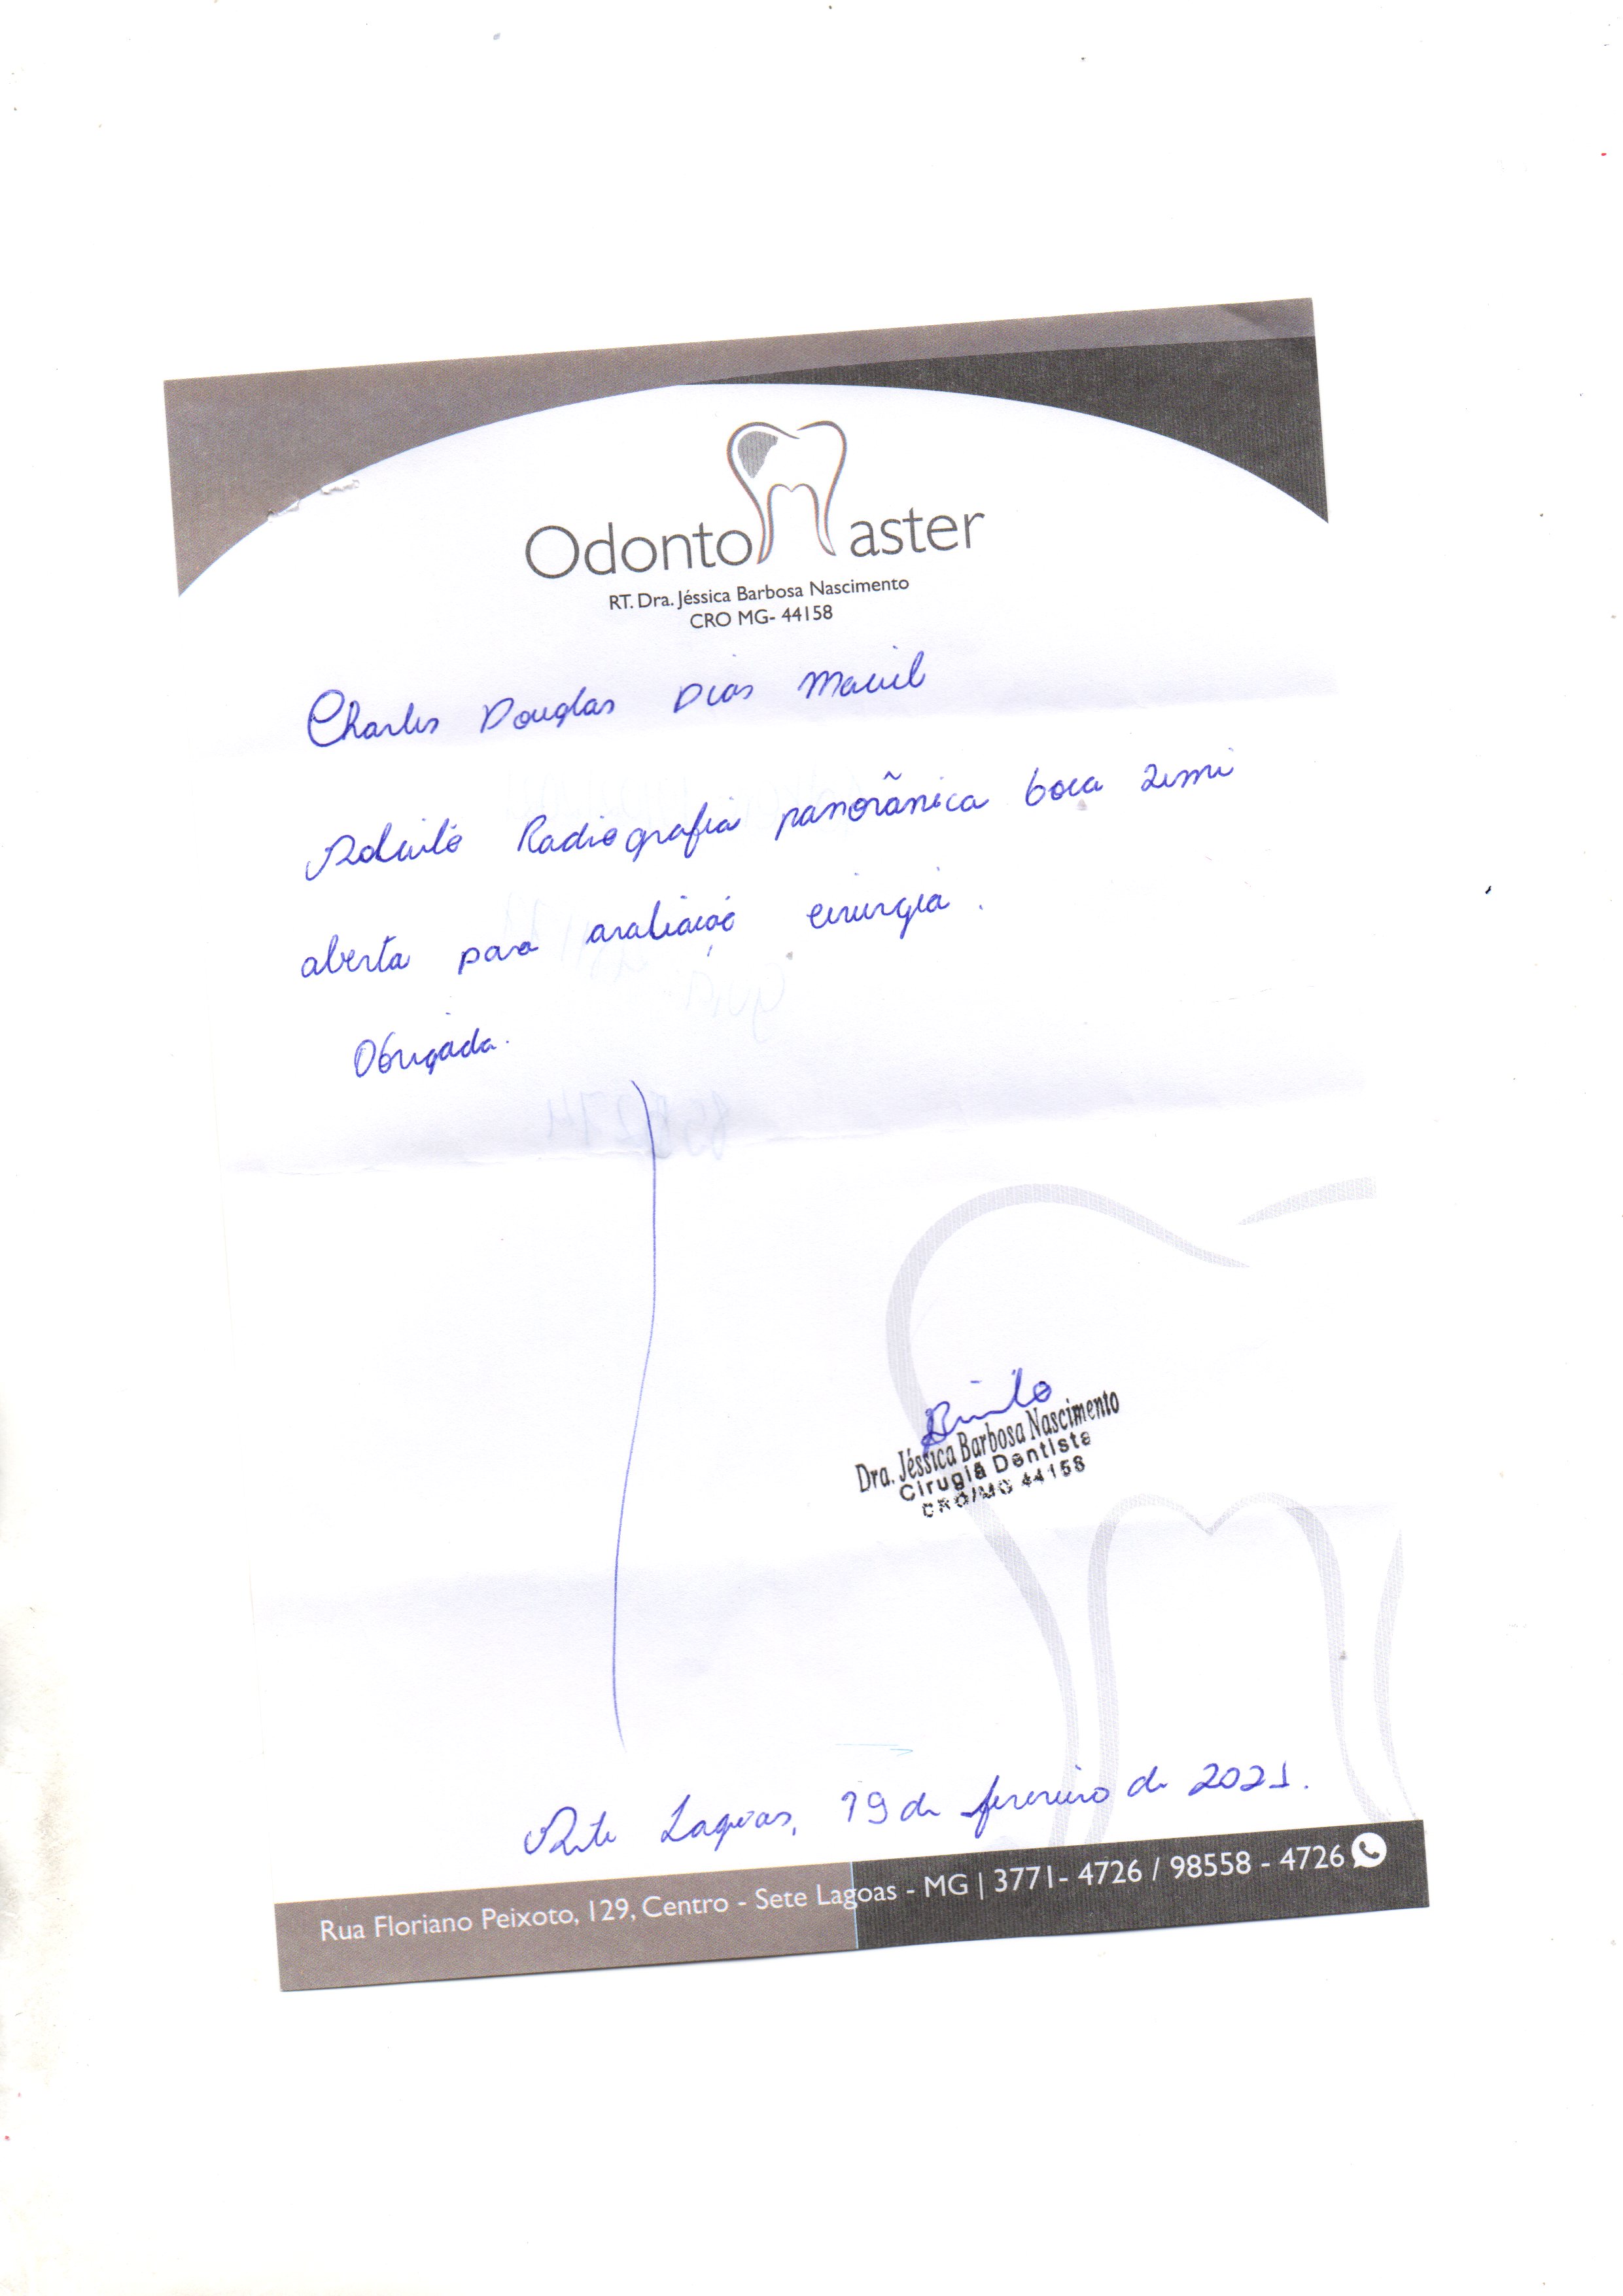 Odonto Master
RT. Dra. Jéssica Barbosa Nascimento
CRO MG- 44158
Charles Douglas Dias Maciel
Solicito Radiografia panorânica boca semi
aberta para avaliação cirurgia.
Obrigada.
Dra. Jéssica Barbosa Nascimento
Cirugiã Dentista
CRO/MG 44158
Sete Lagoas, 19 de fevereiro de 2021.
Rua Floriano Peixoto, 129, Centro - Sete Lagoas - MG | 3771- 4726 / 98558 - 4726